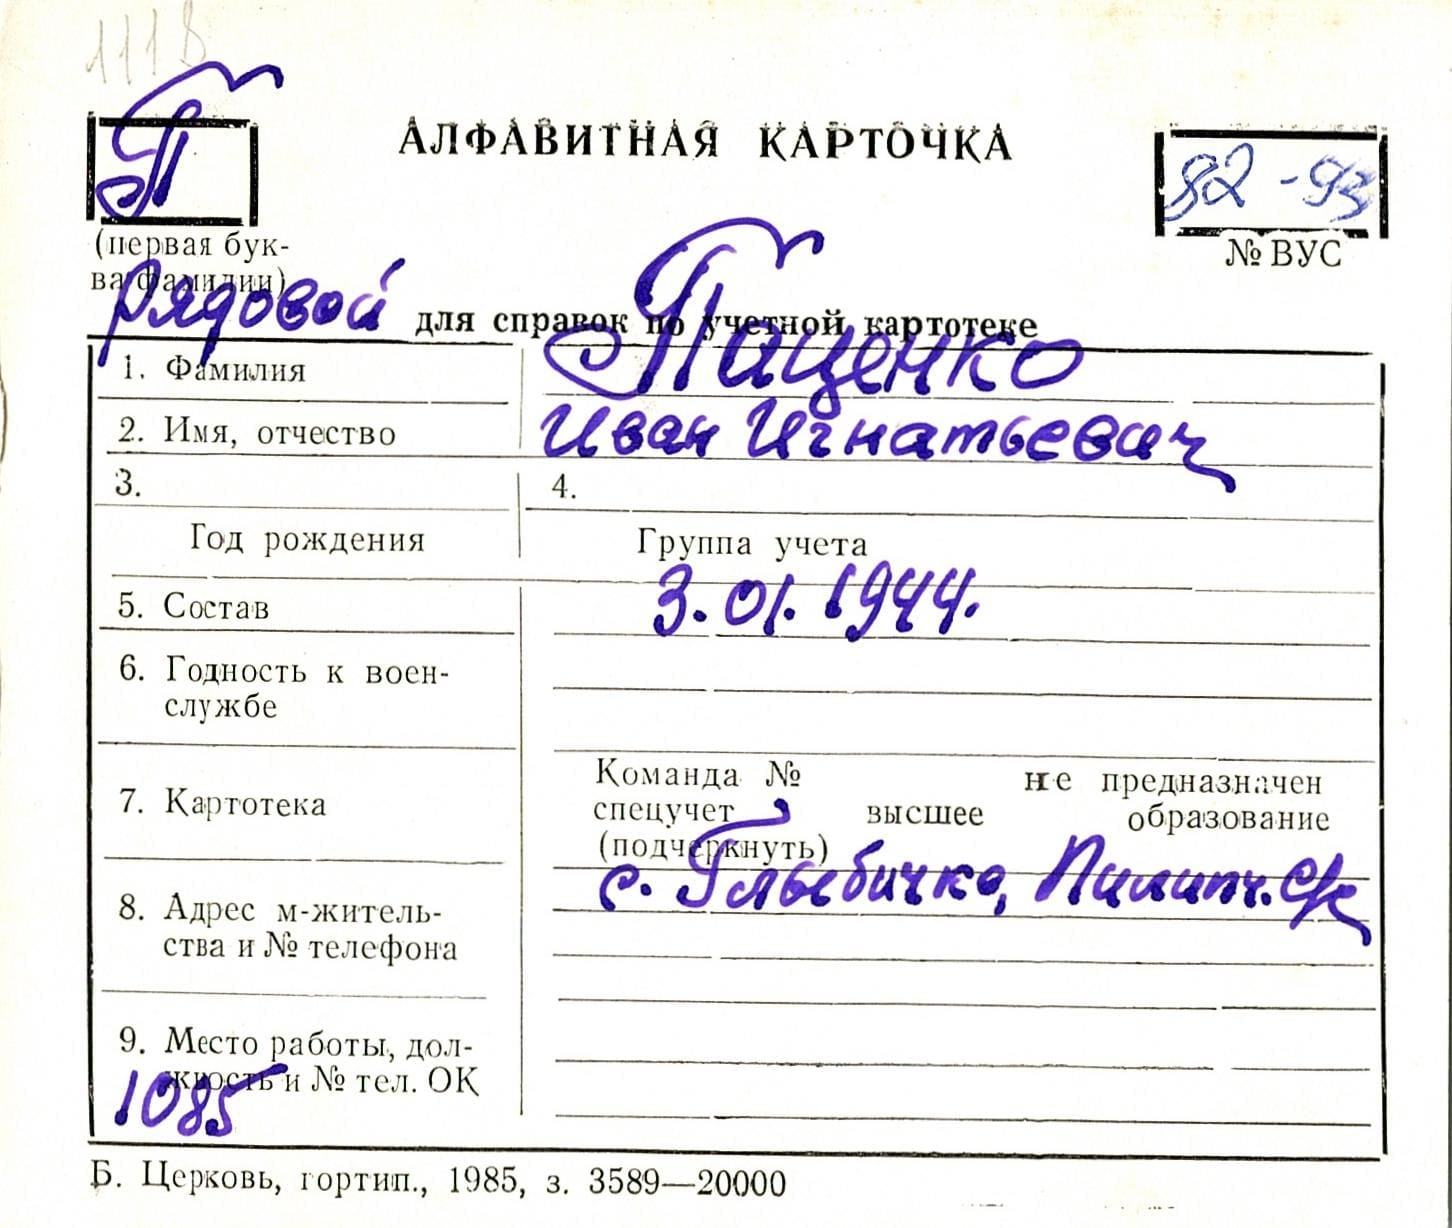 111В
П
АЛФАВИТНАЯ КАРТОЧКА
92-93
(первая бук-
ва фамилии)
№ ВУС
Рядовой
для справок по учетной картотеке
1. Фамилия Паценко
2. Имя, отчество Иван Игнатьевич
3. 4.
Год рождения Группа учета
5. Состав 3.01.1944.
6. Годность к воен-
службе
Команда № не предназначен
7. Картотека спецучет высшее образование
(подчеркнуть)
с. Глыбичка, Пилипч. с/с
8. Адрес м-житель-
ства и № телефона
9. Место работы, дол-
жность и № тел. ОК
1085
Б. Церковь, гортип., 1985, з. 3589—20000